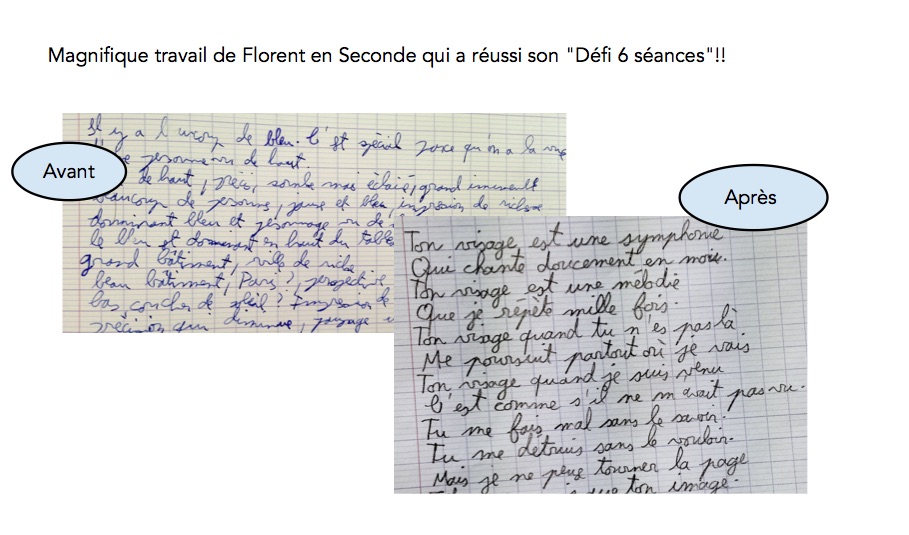 Magnifique travail de Florent en Seconde qui a réussi son "Défi 6 séances"!!
Avant
Il y a de bleu. C'est spécial parce qu'on a la vue
personnes de haut.
de haut, précis, sombre mais éclairé, grand immeuble
beaucoup de personnes, jaune et bleu, impression de richesse
dominant bleu et personnage de
Le bleu est dominant en haut du table
grand bâtiment, ville de riche
beau bâtiment, Paris?, perspective
bas, coucher de soleil? Impression de
précision qui diminue, paysage
Après
Ton visage est une symphonie
Qui chante doucement en moi.
Ton visage est une mélodie
Que je répète mille fois.
Ton visage quand tu n'es pas là
Me poursuit partout où je vais
Ton visage quand je suis venu
C'est comme s'il ne m'avait pas vu.
Tu me fais mal sans le savoir.
Tu me détruis sans le vouloir.
Mais je ne peux tourner la page
que ton image.